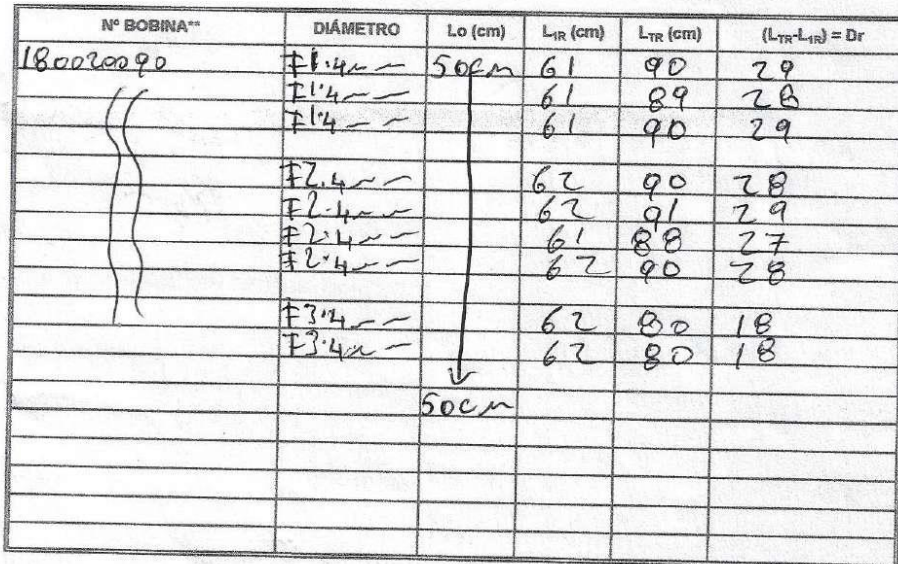 Nº BOBINA** DIÁMETRO Lo (cm) L1R (cm) LTR (cm) (LTR-L1R) = Dr
180020090 F1·4mm 50cm 61 90 29
F1·4mm 61 89 28
F1·4mm 61 90 29
F2·4mm 62 90 28
F2·4mm 62 91 29
F2·4mm 61 88 27
F2·4mm 62 90 28
F3·4mm 62 80 18
F3·4mm 62 80 18
50cm